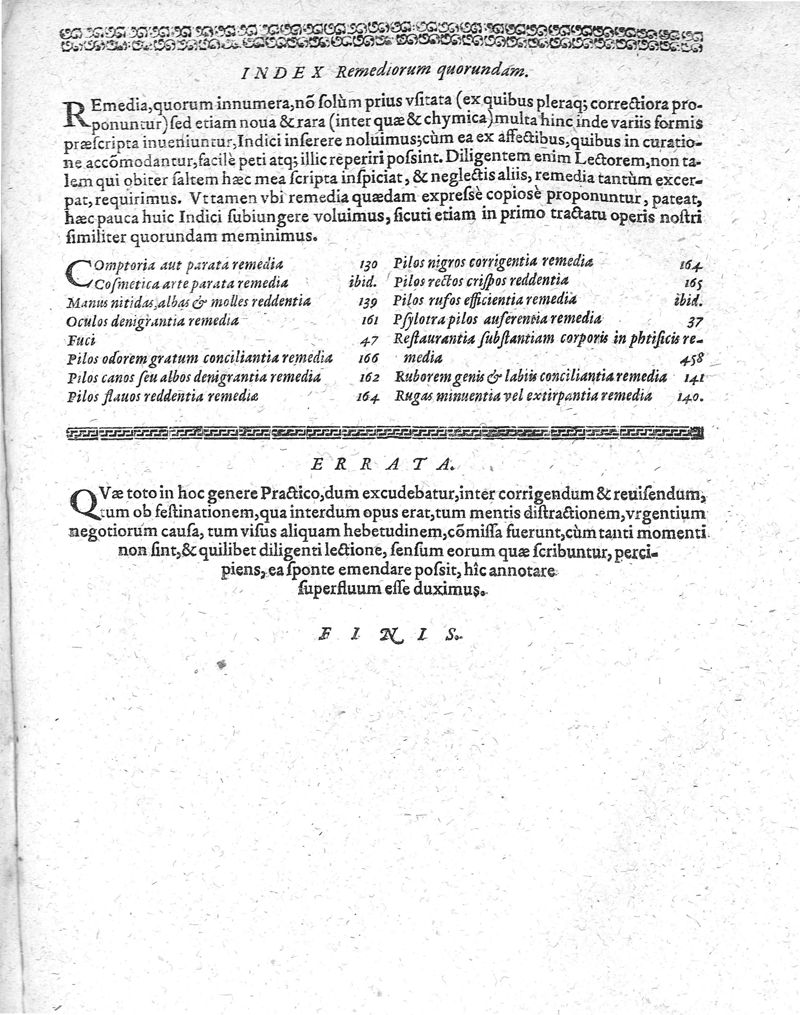 INDEX Remediorum quorundam.
REmedia,quorum innumera,nõ ſolùm prius vſitata (ex quibus pleraq; correctiora pro-
ponuntur) ſed etiam noua & rara (inter quæ & chymica) multa hinc inde variis formis
præſcripta inueniuntur,Indici inſerere noluimus;cùm ea ex affectibus,quibus in curatio-
ne accõmodantur,facilè peti atq; illic reperiri poſsint. Diligentem enim Lectorem,non ta-
lem qui obiter ſaltem hæc mea ſcripta inſpiciat, & neglectis aliis, remedia tantùm excer-
pat, requirimus. Vttamen vbi remedia quædam expreſsè copiosè proponuntur, pateat,
hæc pauca huic Indici ſubiungere voluimus, ſicuti etiam in primo tractatu operis noſtri
ſimiliter quorundam meminimus.
COmptoria aut parata remedia 130
Coſmetica arte parata remedia ibid.
Manus nitidas,albas & molles reddentia 139
Oculos denigrantia remedia 161
Fuci 47
Pilos odorem gratum conciliantia remedia 166
Pilos canos ſeu albos denigrantia remedia 162
Pilos flauos reddentia remedia 164
Pilos nigros corrigentia remedia 164
Pilos rectos criſpos reddentia 165
Pilos rufos efficientia remedia ibid.
Pſylotra pilos auferentia remedia 37
Reſtaurantia ſubſtantiam corporis in phtiſicis re-
media 458
Ruborem genis & labiis conciliantia remedia 141
Rugas minuentia vel extirpantia remedia 140.
ERRATA.
QVæ toto in hoc genere Practico,dum excudebatur,inter corrigendum & reuiſendum,
tum ob feſtinationem,qua interdum opus erat,tum mentis diſtractionem,vrgentium
negotiorum cauſa, tum viſus aliquam hebetudinem,cõmiſſa fuerunt,cùm tanti momenti
non ſint,& quilibet diligenti lectione, ſenſum eorum quæ ſcribuntur, perci-
piens, ea ſponte emendare poſsit, hîc annotare
ſuperfluum eſſe duximus.
FINIS.